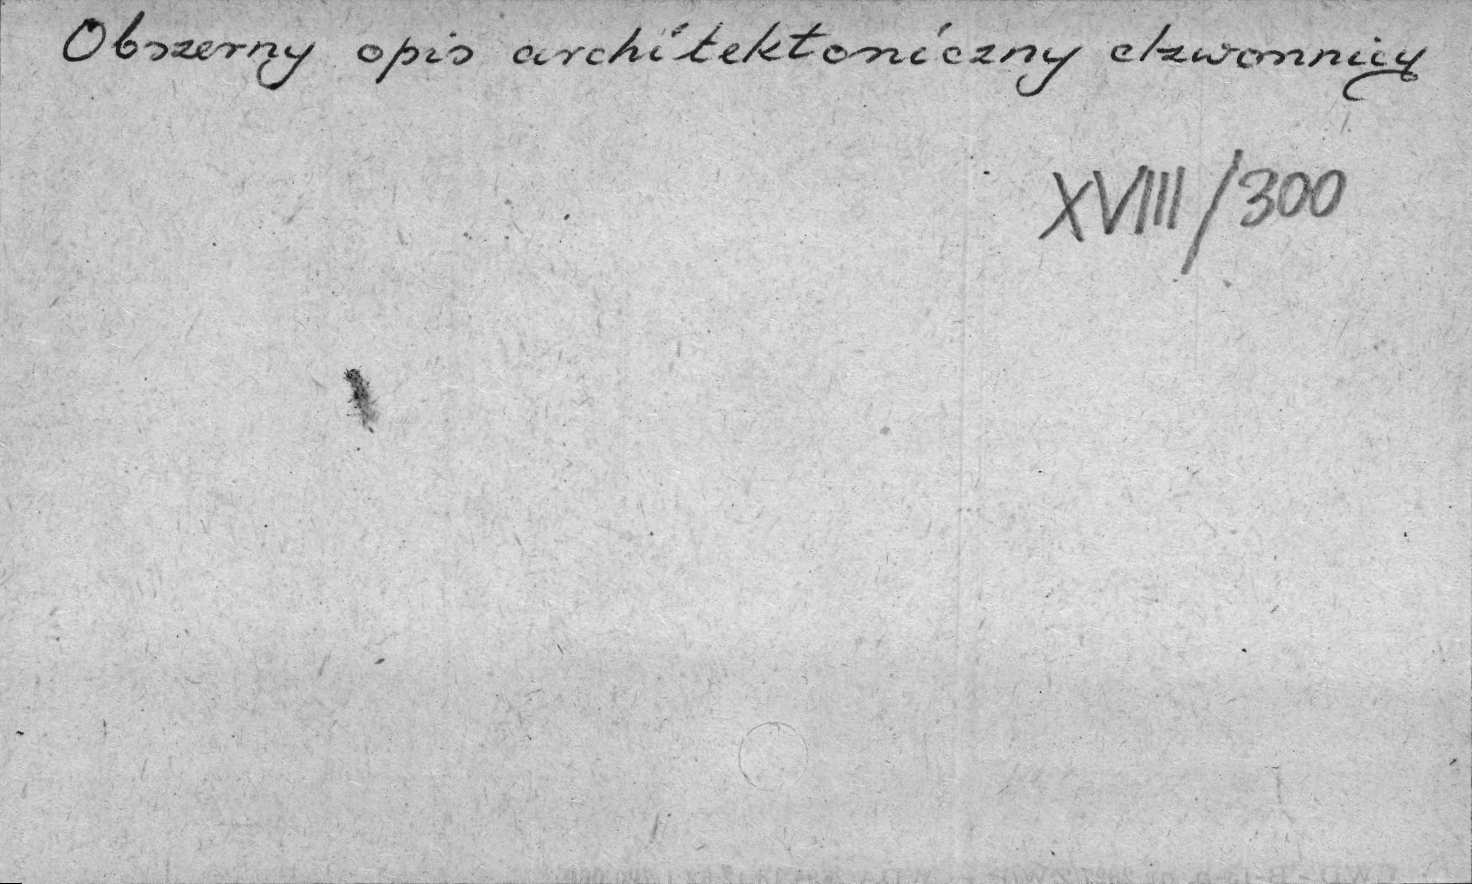 Obszerny opis architektoniczny dzwonnicy
XVIII/300